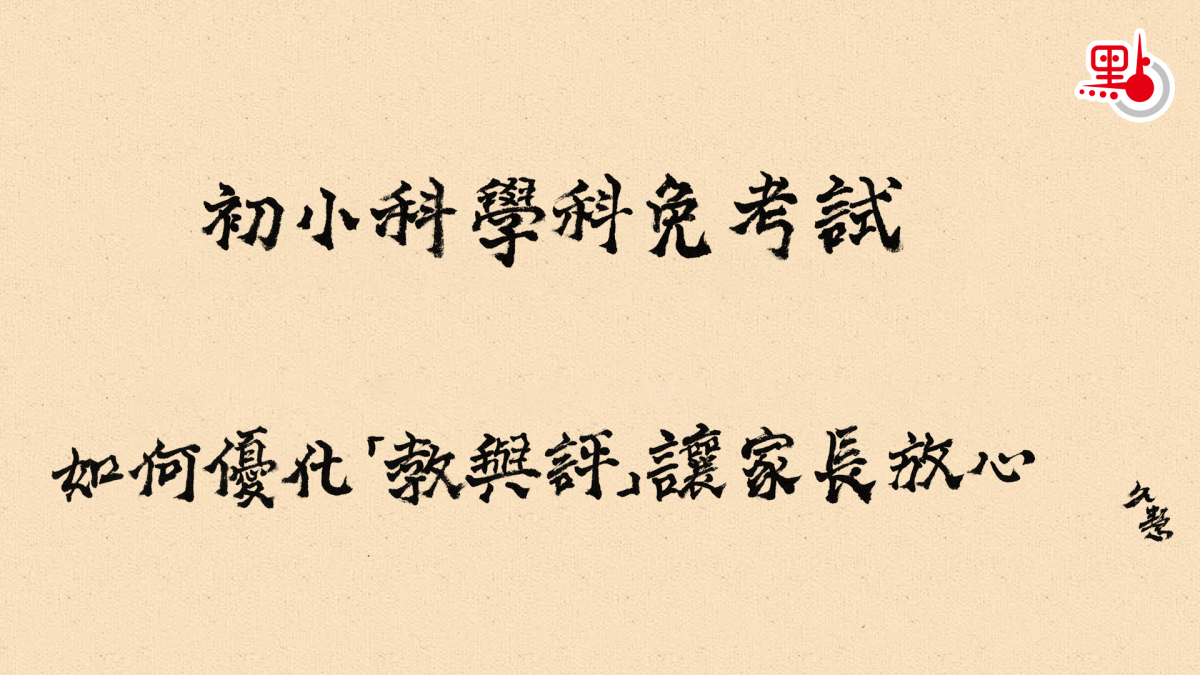 點
初小科學科免考試
如何優化「教與評」讓家長放心
文慧